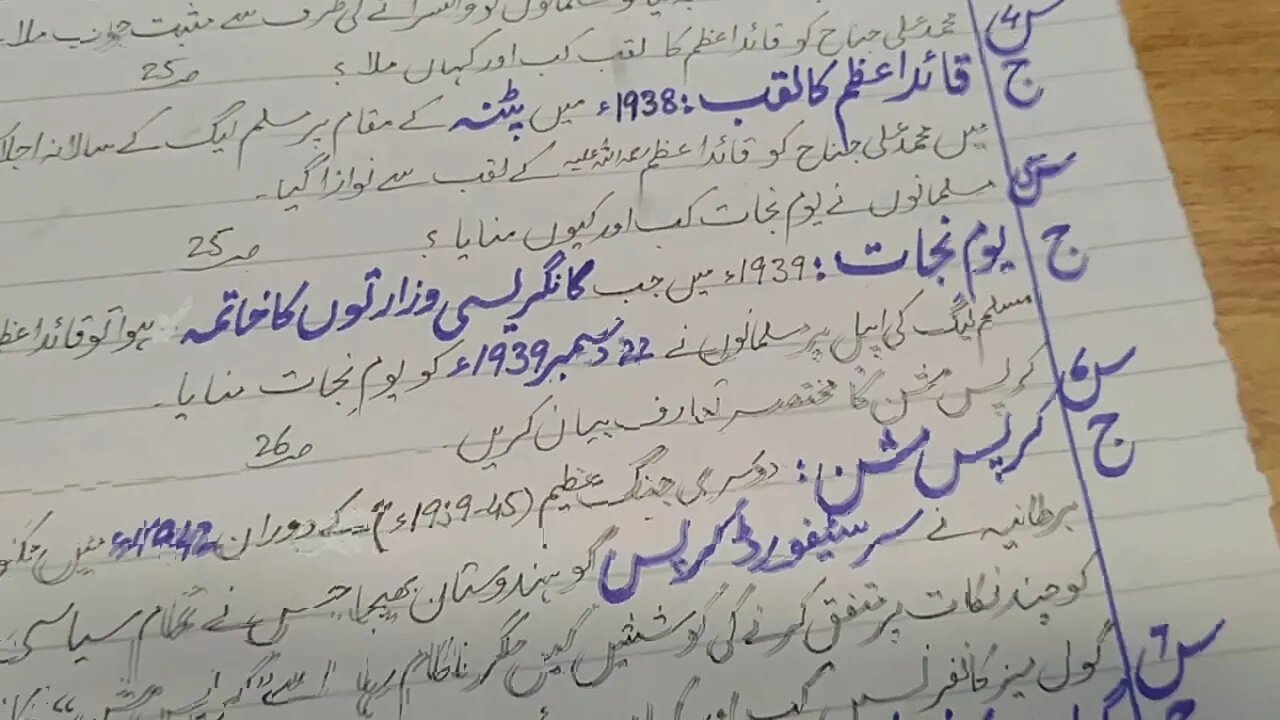 مسلمانوں کو وائسرائے کی طرف سے مثبت جواب ملا۔
س4 محمد علی جناح کو قائداعظم کا لقب کب اور کہاں ملا؟ صـ25
ج قائداعظم کا لقب: 1938ء میں پٹنہ کے مقام پر مسلم لیگ کے سالانہ
میں محمد علی جناح کو قائداعظم رحمۃ اللہ علیہ کے لقب سے نوازا گیا۔
س5 مسلمانوں نے یوم نجات کب اور کیوں منایا؟ صـ25
ج یوم نجات: 1939ء میں جب کانگریسی وزارتوں کا خاتمہ ہوا تو
مسلم لیگ کی اپیل پر مسلمانوں نے 22 دسمبر 1939ء کو یوم نجات منایا۔
س6 کرپس مشن کا مختصر تعارف بیان کریں۔ صـ26
ج کرپس مشن: دوسری جنگ عظیم (1939-45ء) کے دوران 1942ء میں
برطانیہ نے سر سٹیفورڈ کرپس کو ہندوستان بھیجا جس نے تمام سیاسی
کو چند نکات پر متفق کرنے کی کوششیں کیں مگر ناکام رہا اسے
س7 گول میز کانفرنس کب اور